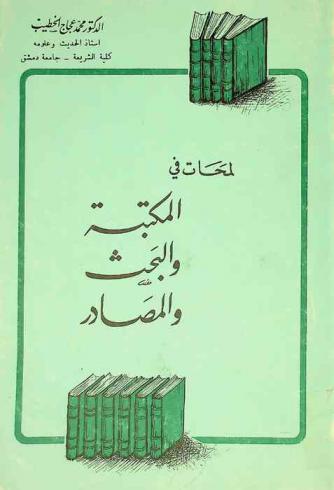 الدكتور محمد عجاج الخطيب
أستاذ الحديث وعلومه
كلية الشريعة - جامعة دمشق
لمحات في
المكتبة
والبحث
والمصادر